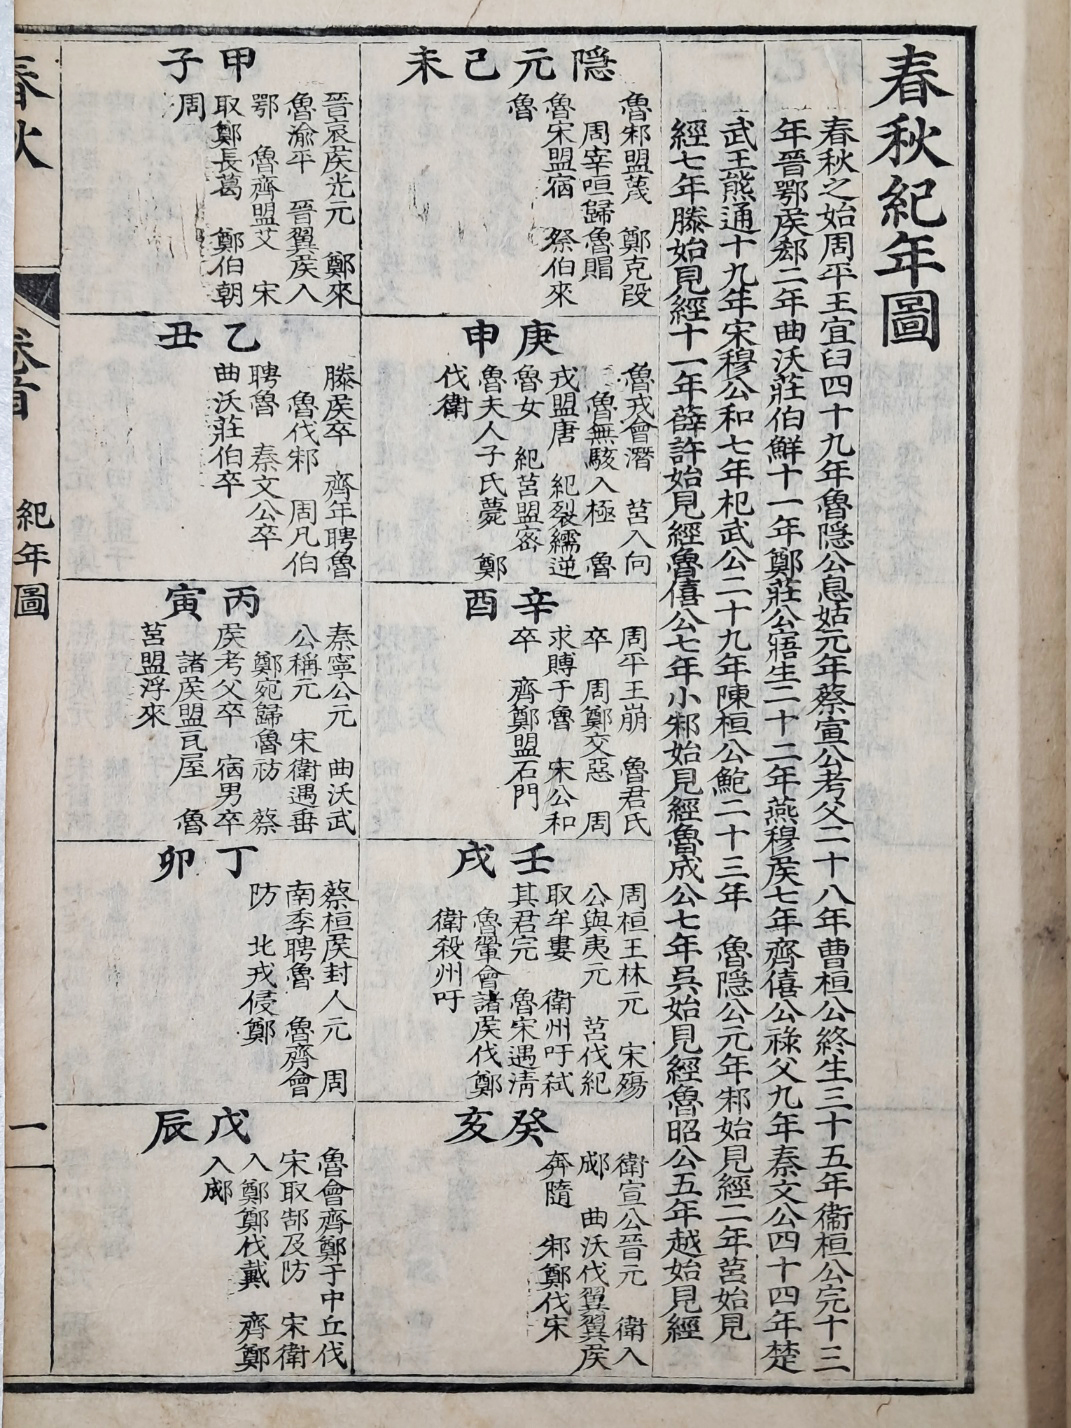 春秋紀年圖
春秋之始周平王宜臼四十九年魯隱公息姑元年蔡宣公考父二十八年曹桓公終生三十五年衞桓公完十三
年晉鄂矦郄二年曲沃莊伯鮮十一年鄭莊公寤生二十二年燕穆矦七年齊僖公祿父九年秦文公四十四年楚
武王熊通十九年宋穆公和七年杞武公二十九年陳桓公鮑二十三年　魯隱公元年邾始見經二年莒始見
經七年滕始見經十一年薛許始見經魯僖公七年小邾始見經魯成公七年吳始見經魯昭公五年越始見經
隱元己未
魯邾盟蔑　鄭克段
周宰咺歸魯賵
魯宋盟宿　祭伯來
魯
庚申
魯戎會潛　莒入向
魯無駭入極　魯
戎盟唐　紀裂繻逆
魯女　紀莒盟密
魯夫人子氏薨　鄭
伐衞
辛酉
周平王崩　魯君氏
卒　周鄭交惡　周
求賻于魯　宋公和
卒　齊鄭盟石門
壬戌
周桓王林元　宋殤
公與夷元　莒伐紀
取牟婁　衛州吁弒
其君完　魯宋遇清
魯翬會諸矦伐鄭
衛殺州吁
癸亥
衛宣公晉元　衛入
郕　曲沃伐翼翼矦
奔隨　邾鄭伐宋
甲子
晉哀矦光元　鄭來
魯渝平　晉翼矦入
鄂　魯齊盟艾　宋
取鄭長葛　鄭伯朝
周
乙丑
滕矦卒　齊年聘魯
魯伐邾　周凡伯
聘魯　秦文公卒
曲沃莊伯卒
丙寅
秦寧公元　曲沃武
公稱元　宋衛遇垂
鄭宛歸魯祊　蔡
矦考父卒　宿男卒
諸矦盟瓦屋　魯
莒盟浮來
丁卯
蔡桓矦封人元　周
南季聘魯　魯齊會
防　北戎侵鄭
戊辰
魯會齊鄭于中丘伐
宋取郜及防　宋衛
入鄭鄭伐戴　齊鄭
入郕
春秋
卷首
紀年圖
一